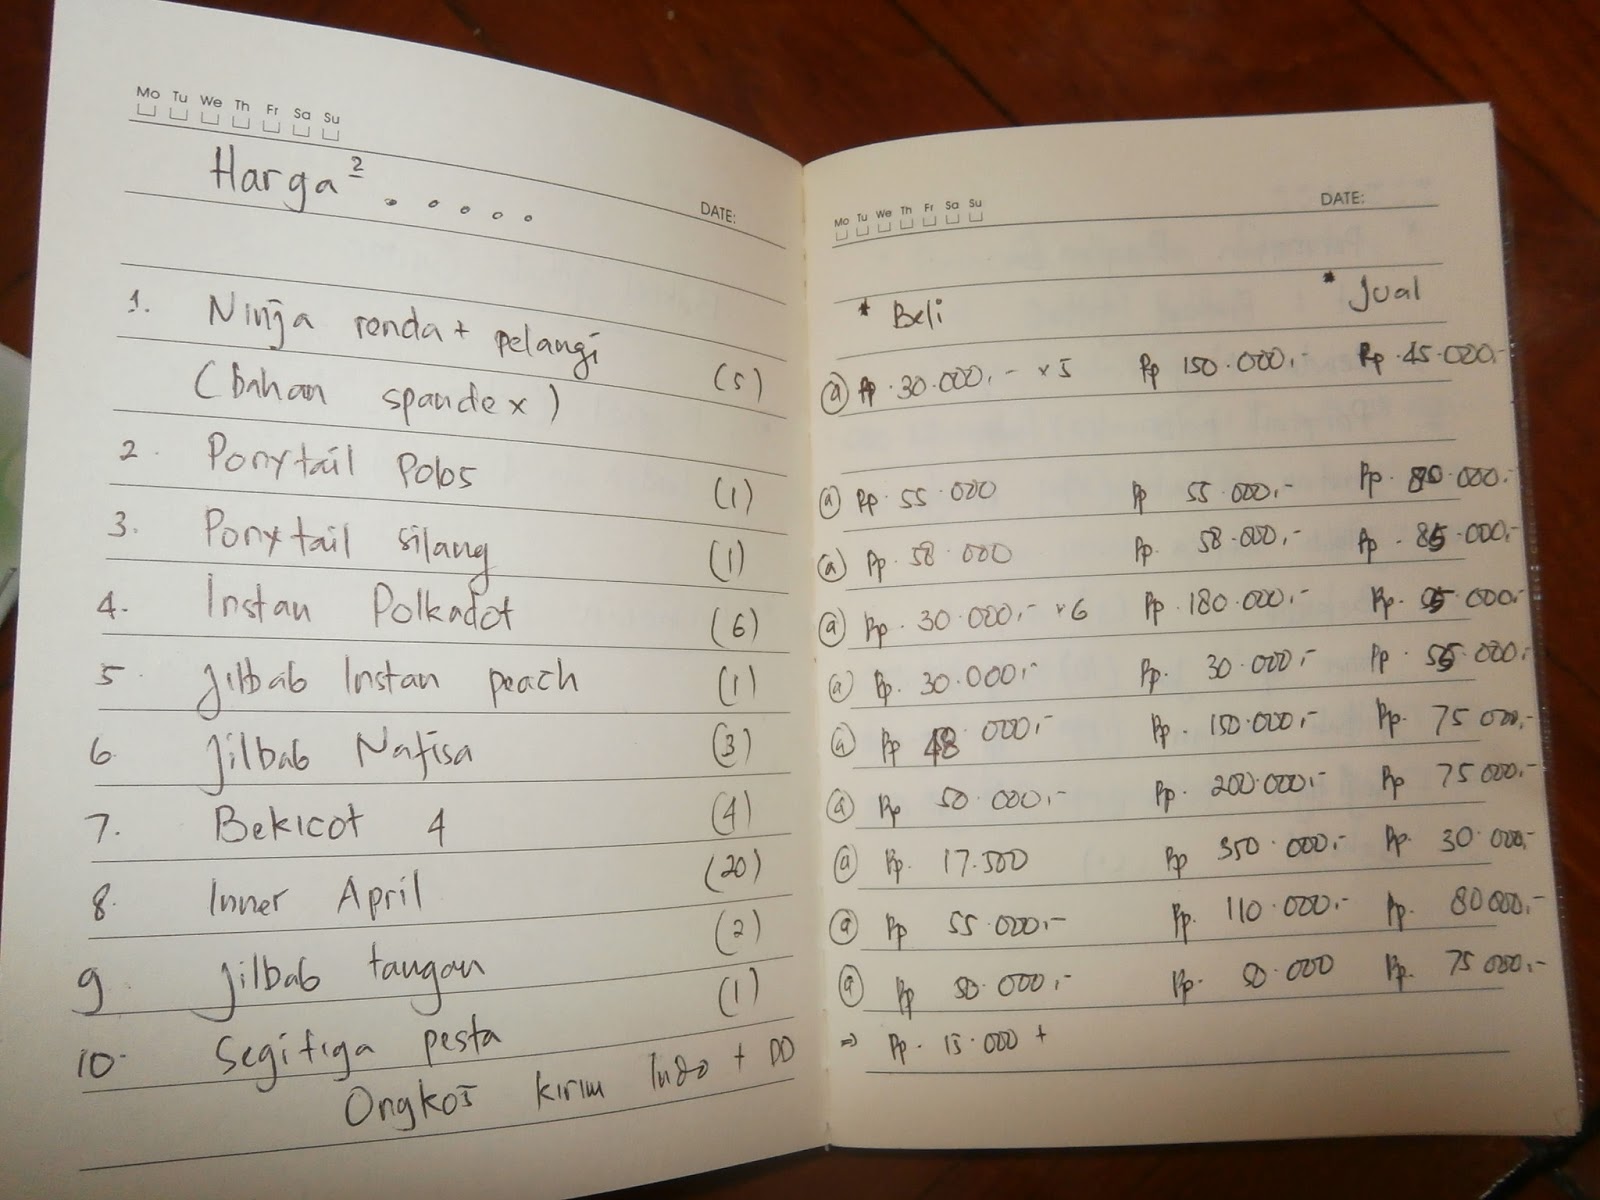 Mo Tu We Th Fr Sa Su
Harga² . . . . .
DATE:
1. Ninja renda + pelangi
(bahan spandex) (5)
2. Ponytail Polos (1)
3. Ponytail silang (1)
4. Instan Polkadot (6)
5. Jilbab Instan peach (1)
6. Jilbab Nafisa (3)
7. Bekicot 4 (4)
8. Inner April (20)
9. Jilbab tangan (2)
10. Segitiga pesta (1)
Ongkos kirim Indo +
Mo Tu We Th Fr Sa Su
DATE:
* Beli * Jual
@ Rp. 30.000,- x5 Rp 150.000,- Rp. 45.000,-
@ Rp. 55.000 Rp 55.000,- Rp. 000.-
@ Rp. 58.000 Rp. 58.000,- Rp. 85.000,-
@ Rp. 30.000,- x6 Rp. 180.000,- Rp. 000,-
@ Rp. 30.000,- Rp. 30.000,- Rp. 55.000,-
@ Rp 48 000,- Rp. 150.000,- Rp. 75 000,-
@ Rp 50.000,- Rp. 200.000,- Rp 75 000,-
@ Rp. 17.500 Rp 350.000,- Rp. 30.000,-
@ Rp 55.000,- Rp. 110.000,- Rp. 80 000,-
@ Rp 50.000,- Rp. 50.000 Rp. 75 000,-
⇒ Rp. 15.000 +